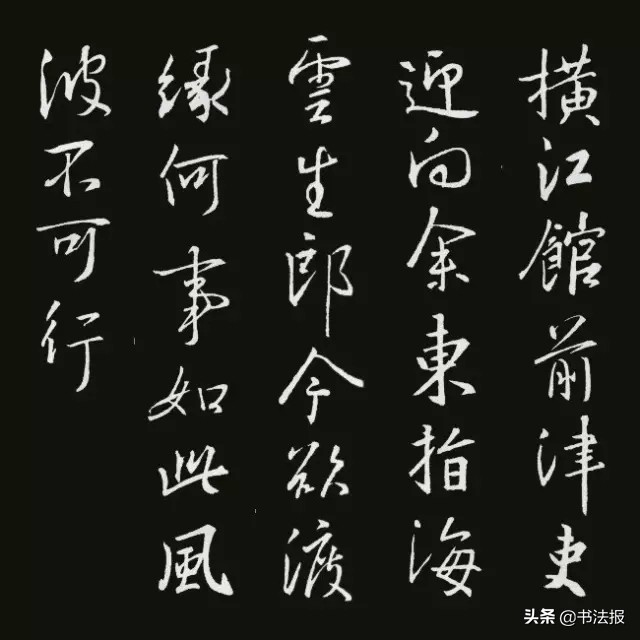 橫江館前津吏
迎向余東指海
雲生郎今欲渡
緣何事如此風
波不可行
头条 @书法报